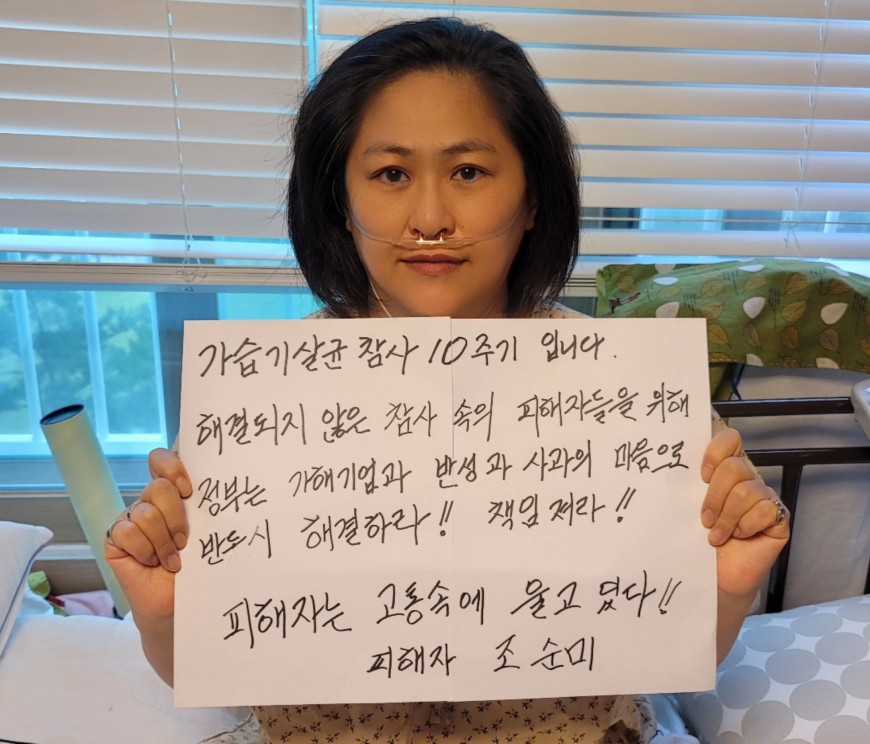 가습기살균 참사 10주기 입니다.
해결되지 않은 참사 속의 피해자들을 위해
정부는 가해기업과 반성과 사과의 마음으로
반드시 해결하라!! 책임져라!!
피해자는 고통속에 울고 있다!!
피해자 조순미